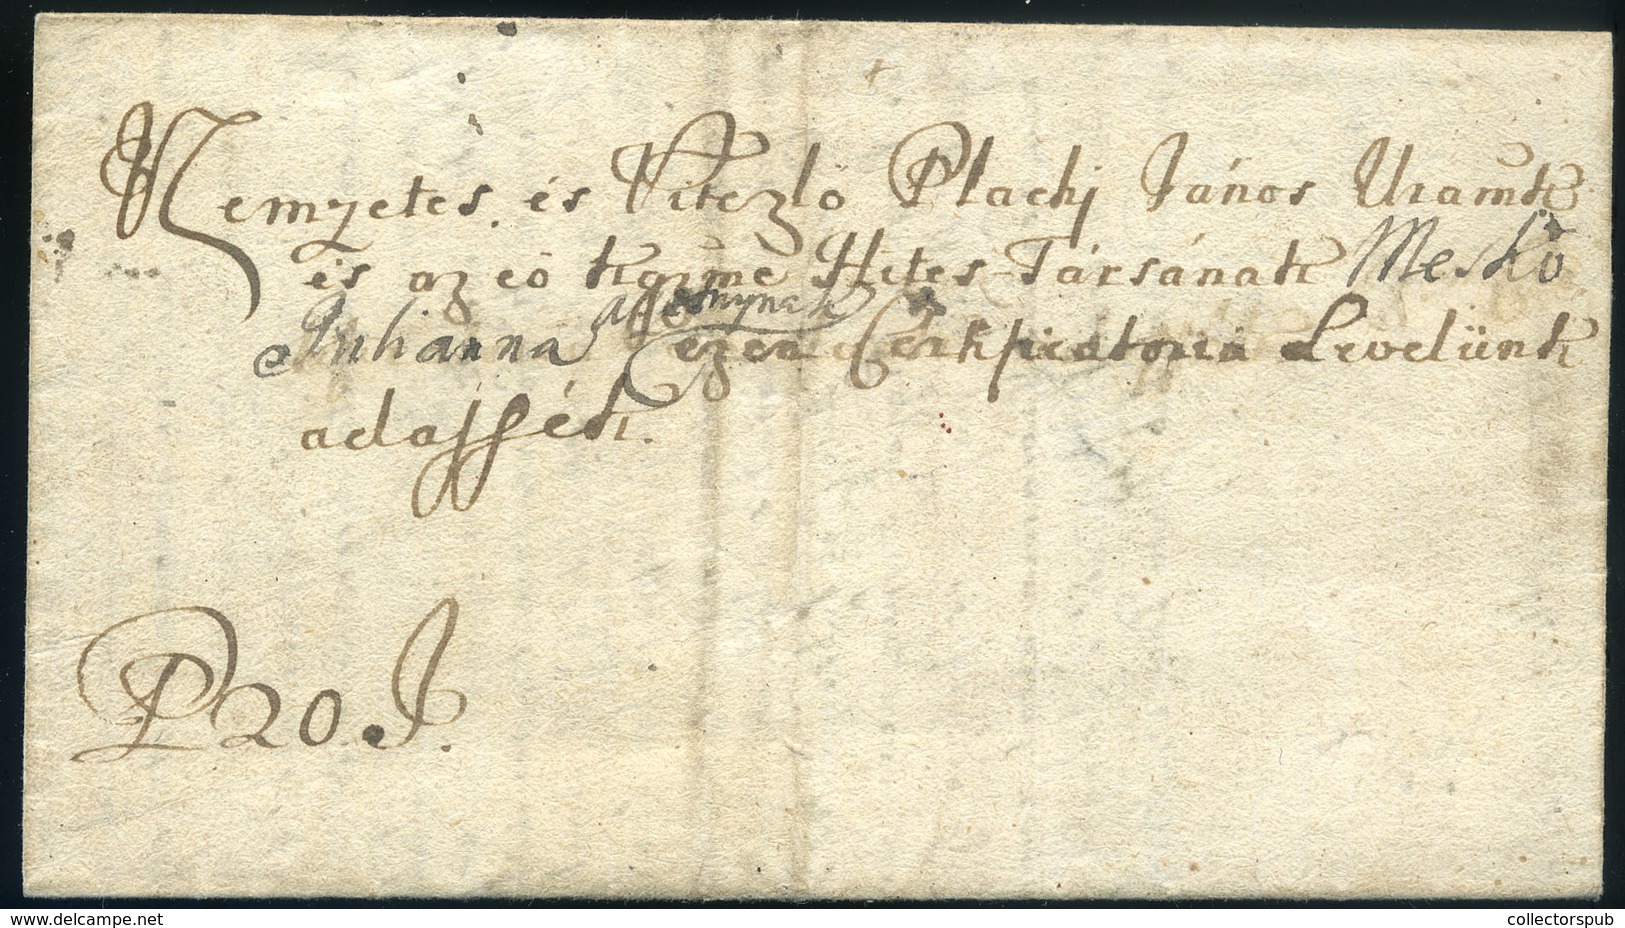 Nemzetes és Vitézlö Plachj János Uramk
és az eö kgyme Hites-Társának Meskó
Julianna Aszszonynak ezen Levelünk
adassék.
P 20. J.
www.delcampe.net
collectorspub